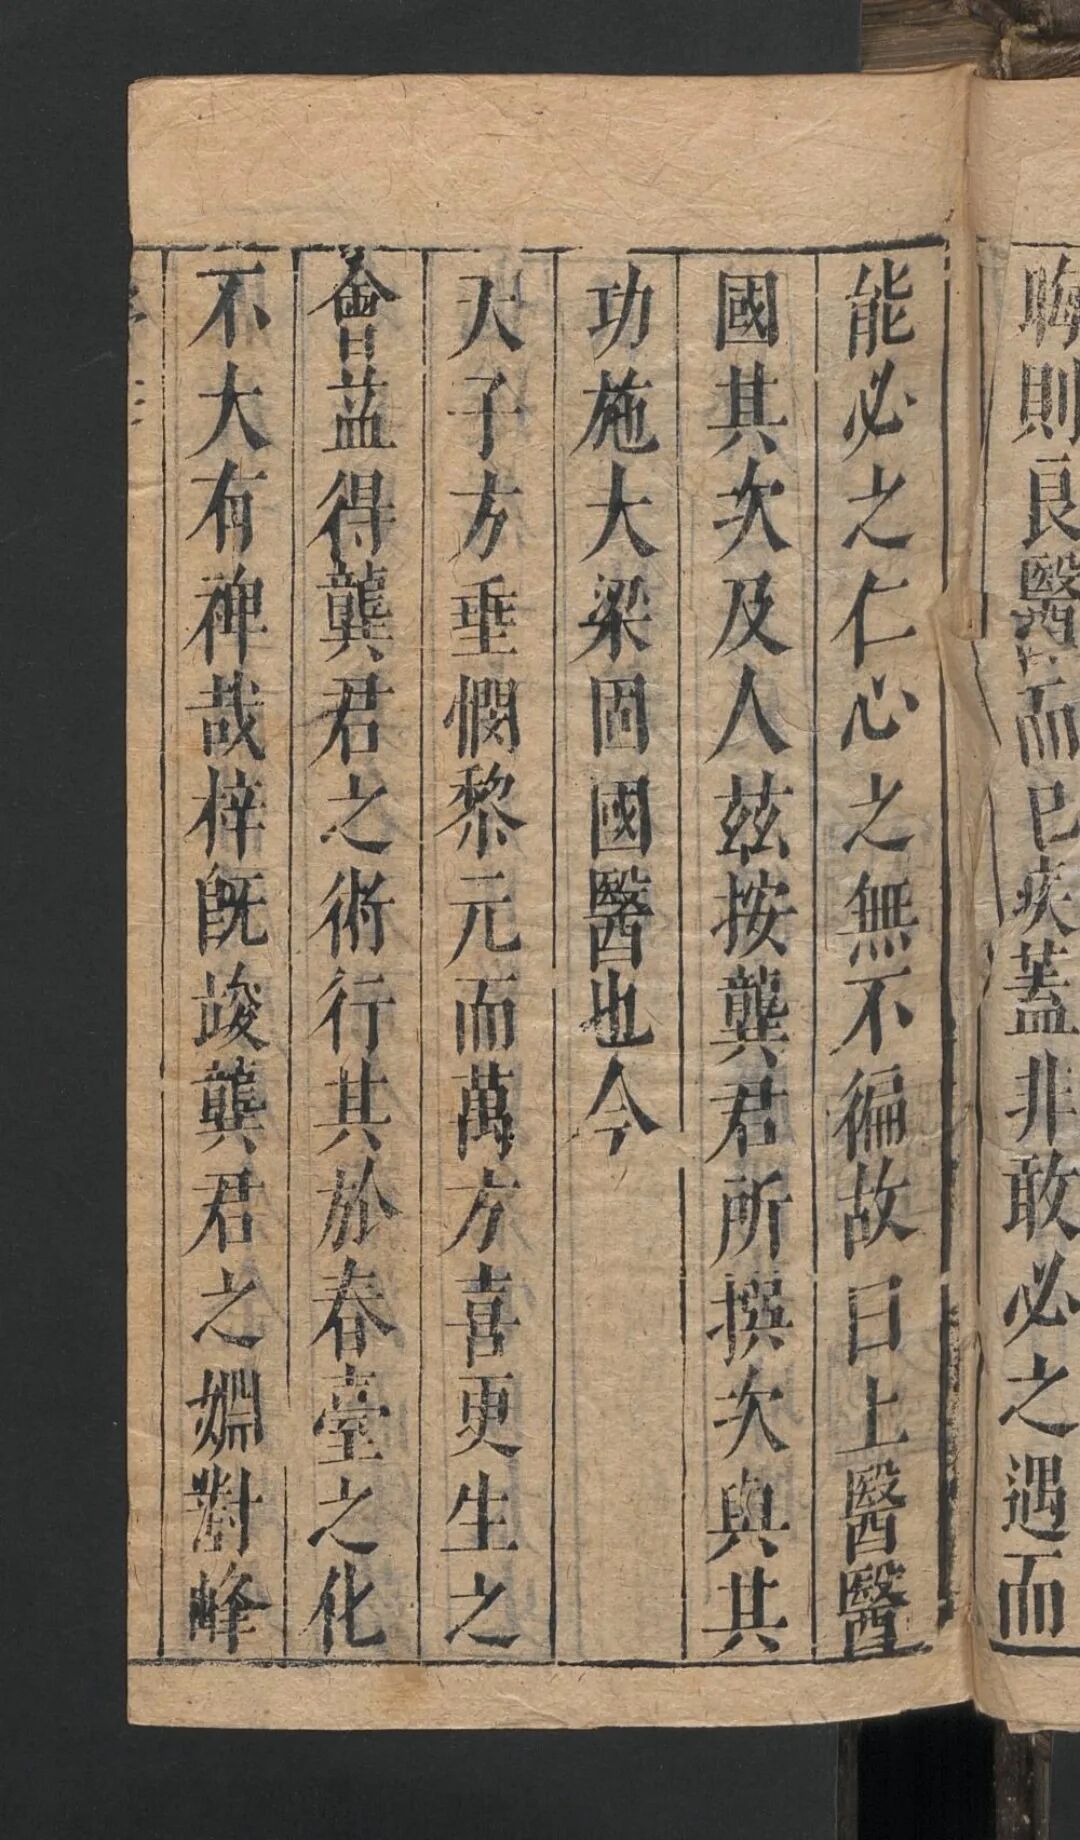 晦則良醫而已疾蓋非敢必之遇而
能必之仁心之無不徧故曰上醫醫
國其次及人茲按龔君所撰次與其
功施大梁固國醫也今
天子方垂憫黎元而萬方喜更生之
會蓝得龔君之術行其於春臺之化
不大有裨哉梓旣竣龔君之婣對峰